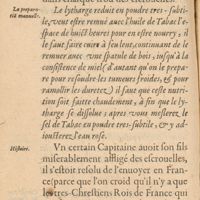 La prepara-
tió manuelle.
Le lytharge reduit en poudre tres-subti-
le, veut estre remué auec l'huile de Tabac l'es-
pace de huict heures pour en estre nourry, il
le faut faire cuire à feu lent, continuant de le
remuer auec vne spatule de bois, iusqu'à la
consistence de miel s'autant qu'on le prepa-
re pour resoudre les tumeurs froides, & pour
ramollir les duretez) il faut que ceste nutri-
tion soit faicte chaudement, à fin que le ly-
tharge se dissolue; apres vous meslerez le
sel de Tabac en poudre tres-subtile, & y ad-
iousterez l'eau rose.
Histoire.
Vn certain Capitaine auoit son fils
miserablement affligé des escrouelles,
il s'estoit resolu de l'enuoyer en Fran-
ce (parce que l'on croid qu'il n'y a que
les tres-Chrestiens Rois de France qui